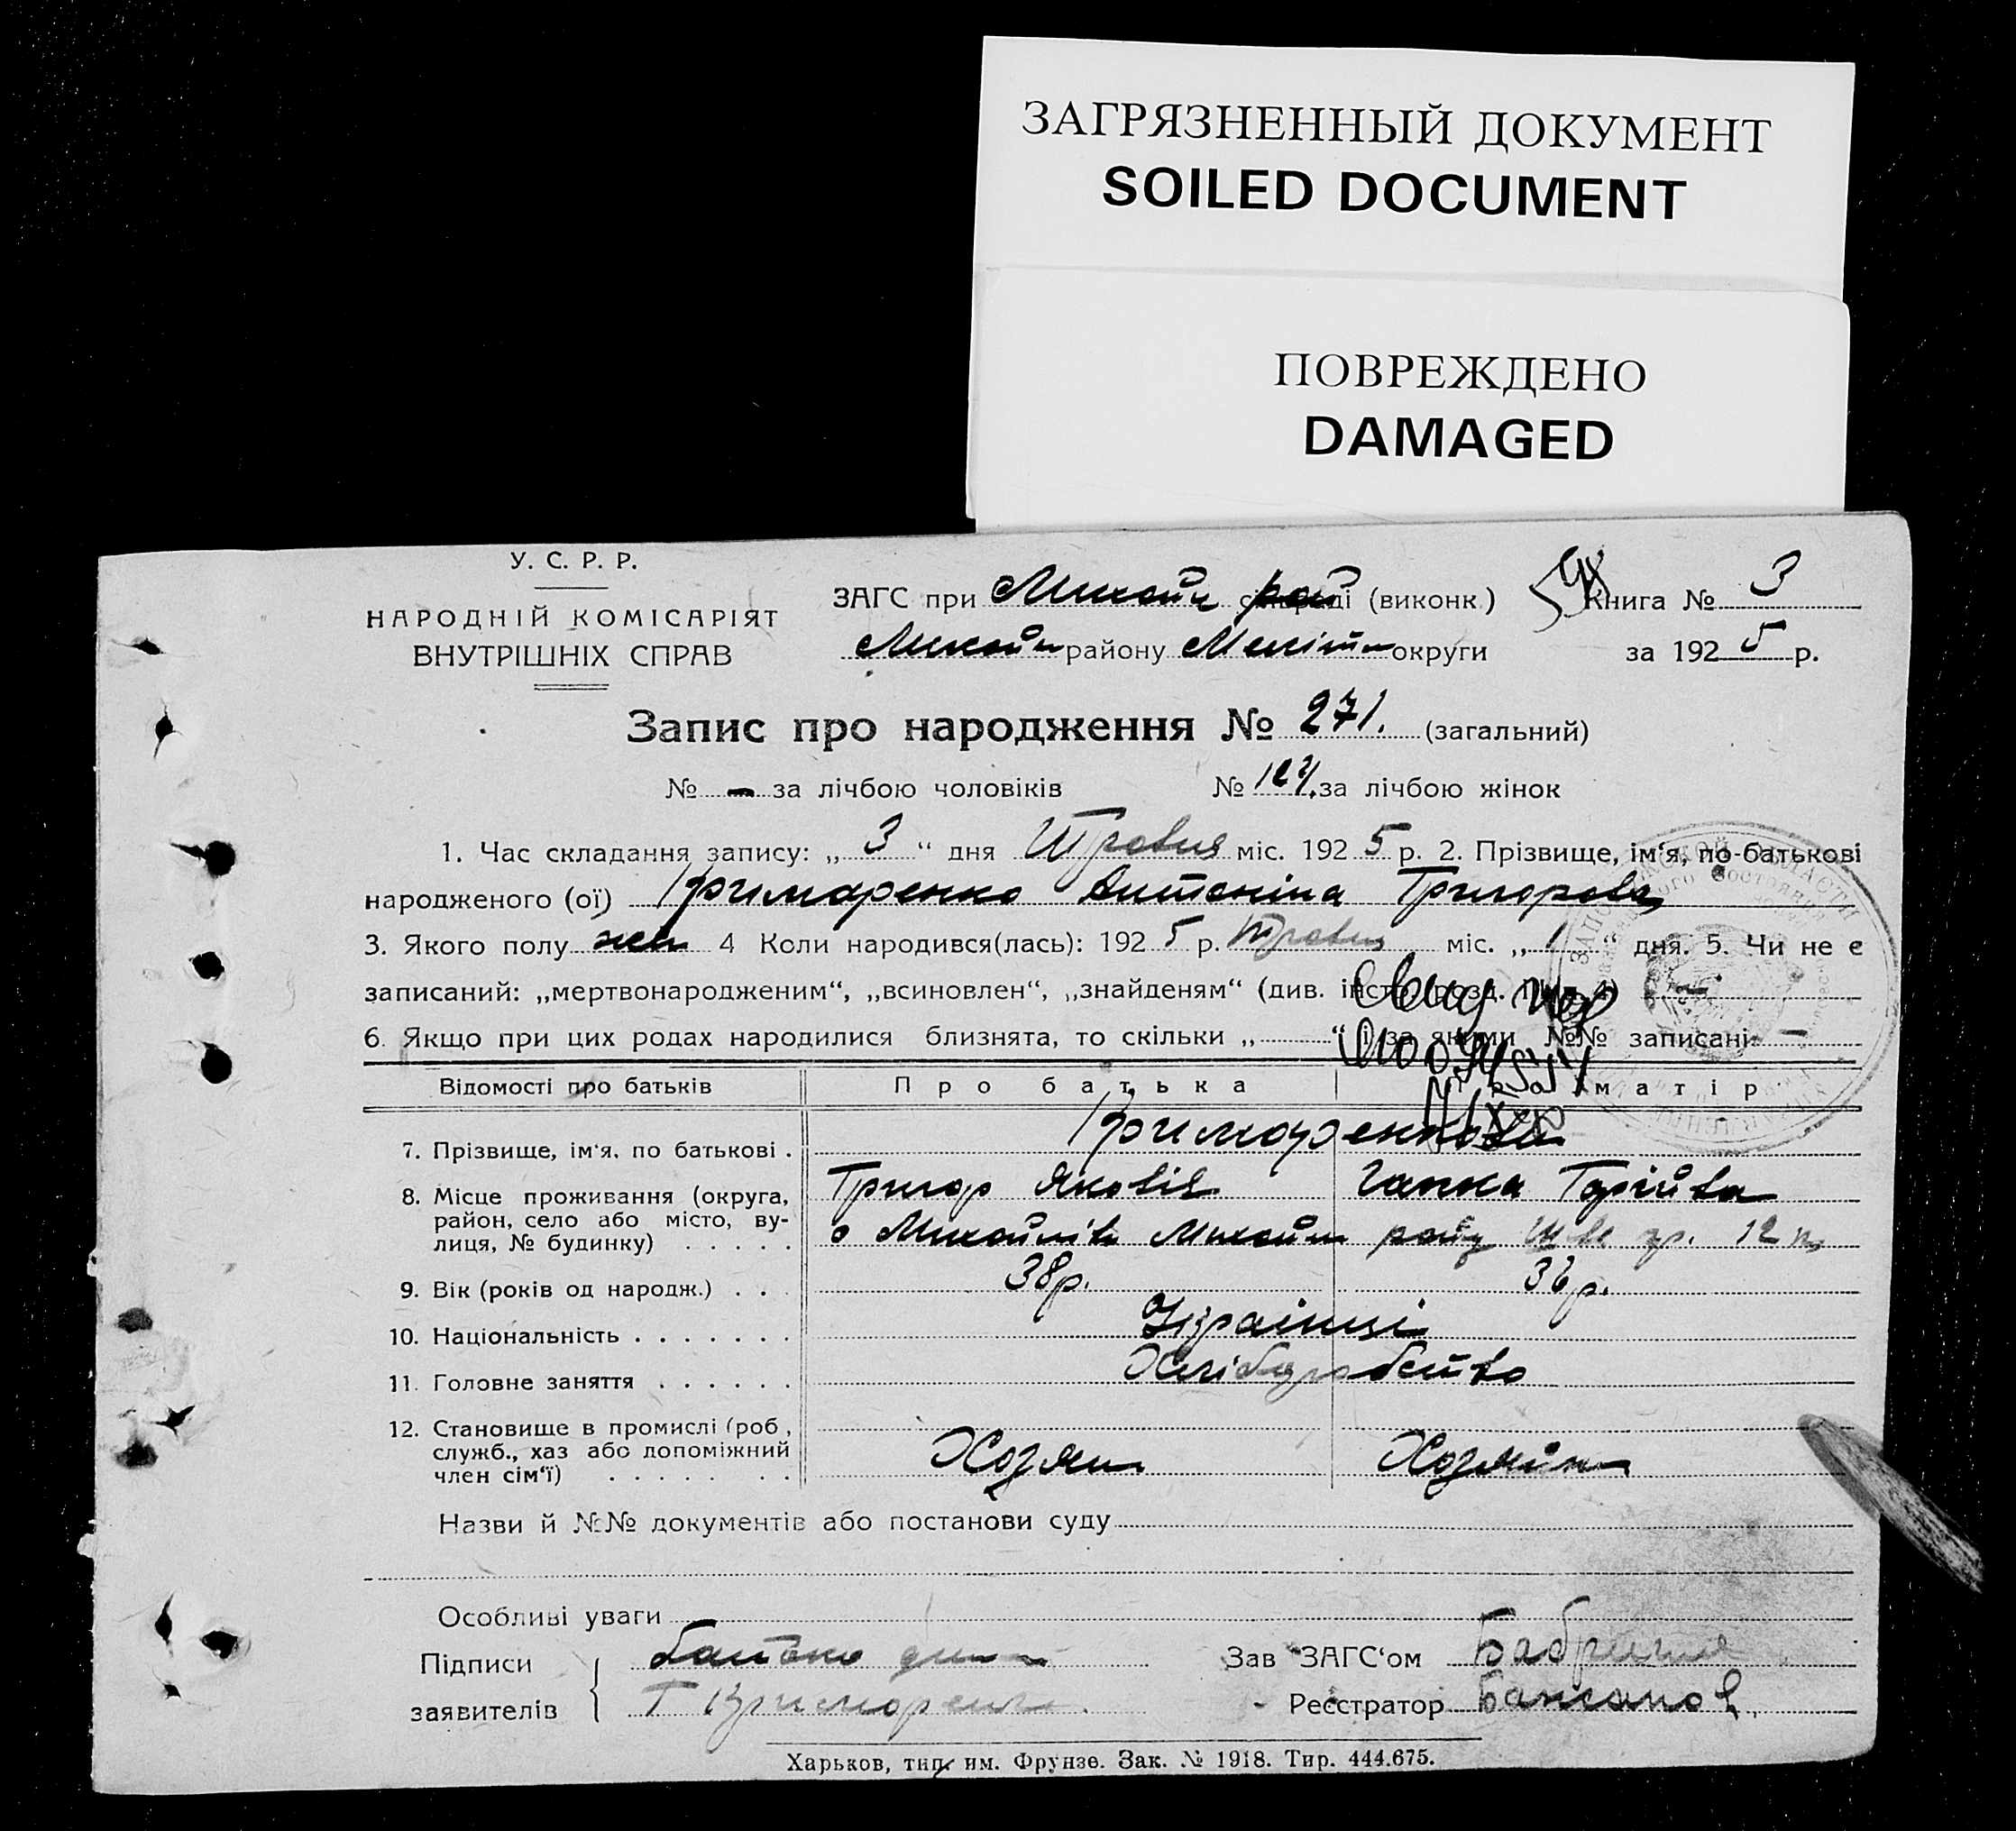 ЗАГРЯЗНЕННЫЙ ДОКУМЕНТ
SOILED DOCUMENT
ПОВРЕЖДЕНО
DAMAGED
У. С. Р. Р.
НАРОДНІЙ КОМІСАРІЯТ
ВНУТРІШНІХ СПРАВ
ЗАГС при Михайл рай (виконк.) Книга № 3
Михайл району Меліт округи за 1925 р.
Запис про народження № 271. (загальний)
№ — за лічбою чоловіків № за лічбою жінок
1. Час складання запису: „ 3 “ дня Травня міс. 1925 р. 2. Прізвище, ім‘я, по-батькові
народженого (ої) Антоніна Григоровa
3. Якого полу жін 4 Коли народився(лась): 1925 р. Травня міс. „ 1 “ дня. 5. Чи не є
записаний: „мертвонародженим“, „всиновлен“, „знайденям“ (див. інстр. розд. —
6. Якщо при цих родах народилися близнята, то скільки „ “ і за якими №№ записані —
Відомості про батьків Про батька матір
7. Прізвище, ім‘я, по батькові .
8. Місце проживання (округа, район, село або місто, вулиця, № будинку) . . . . .
Григор Яковів Ганна
с Михайлівк Михайл райу
9. Вік (років од народж.) . . . 38р. 36р.
10. Національність . . . . . . . Українці
11. Головне заняття . . . . . . Хліборобство
12. Становище в промислі (роб, служб., хаз або допоміжний член сім‘ї) . . . . . . . Хозяин Хозяйка
Назви й №№ документів або постанови суду
Особливі уваги
Підписи заявителів { батько
Зав ЗАГС‘ом
Реєстратор Бажанов
Харьков, тип. им. Фрунзе. Зак. № 1918. Тир. 444.675.